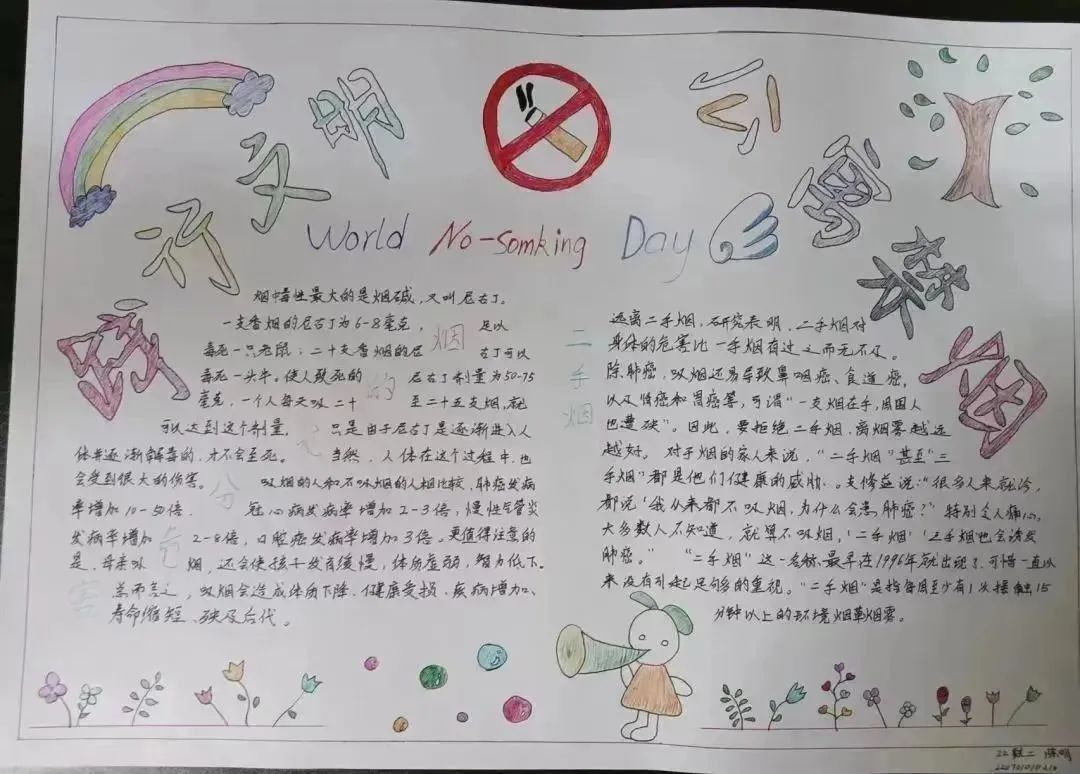 践行文明
公寓禁烟
World No-Somking Day
烟中毒性最大的是烟碱，又叫尼古丁。
一支香烟的尼古丁为6-8毫克，足以
毒死一只老鼠；二十支香烟的尼古丁可以
毒死一头牛。使人致死的尼古丁剂量为50-75
毫克，一个人每天吸二十至二十五支烟，就
可以达到这个剂量，只是由于尼古丁是逐渐进入人
体并逐渐解毒的，才不会至死。当然，人体在这个过程中，也
会受到很大的伤害。吸烟的人和不吸烟的人相比较，肺癌发病
率增加10-50倍．冠心病发病率增加2-3倍，慢性气管炎
发病率增加2-8倍，口腔癌发病率增加3倍。更值得注意的
是，母亲吸烟，还会使孩子发育缓慢，体质虚弱，智力低下。
总而言之，吸烟会造成体质下降、健康受损、疾病增加、
寿命缩短、殃及后代。
烟的
分危害
二手烟
远离二手烟，研究表明，二手烟对
身体的危害比一手烟有过之而无不及。
除肺癌，吸烟还易导致鼻咽癌、食道癌，
以及肾癌和胃癌等，可谓"一支烟在手，周围人
也遭殃"。因此，要拒绝二手烟，离烟雾越远
越好。对于烟的家人来说，"二手烟"甚至"三
手烟"都是他们健康的威胁．支修益说："很多人来就诊，
都说'我从来都不吸烟，为什么会患肺癌？'特别令人痛心，
大多数人不知道，就算不吸烟，'二手烟''三手烟'也会诱发
肺癌。" "二手烟"这一名称，最早在1996年就出现了，可惜一直以
来没有引起足够的重视。"二手烟"是指每周至少有1次接触15
分钟以上的环境烟草烟雾。
22数二 陈明